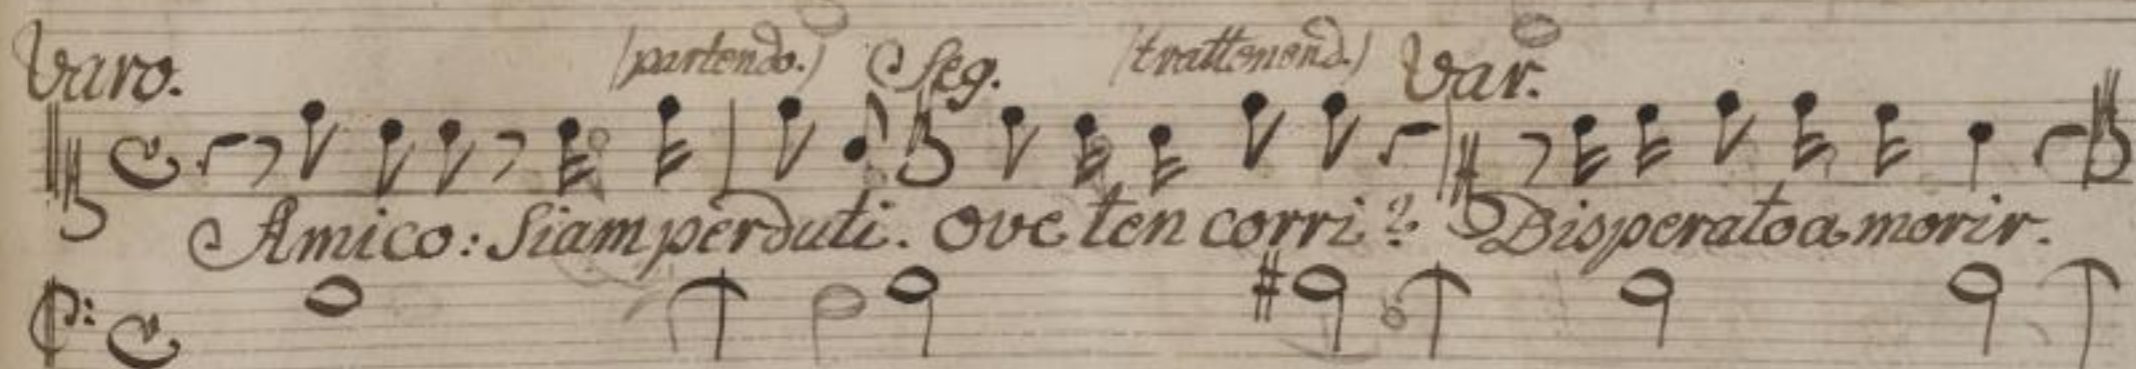 Varo. (partendo.) Seg. (trattenend.) Var.
Amico: Siam perduti. Ove ten corri? Disperato a morir.